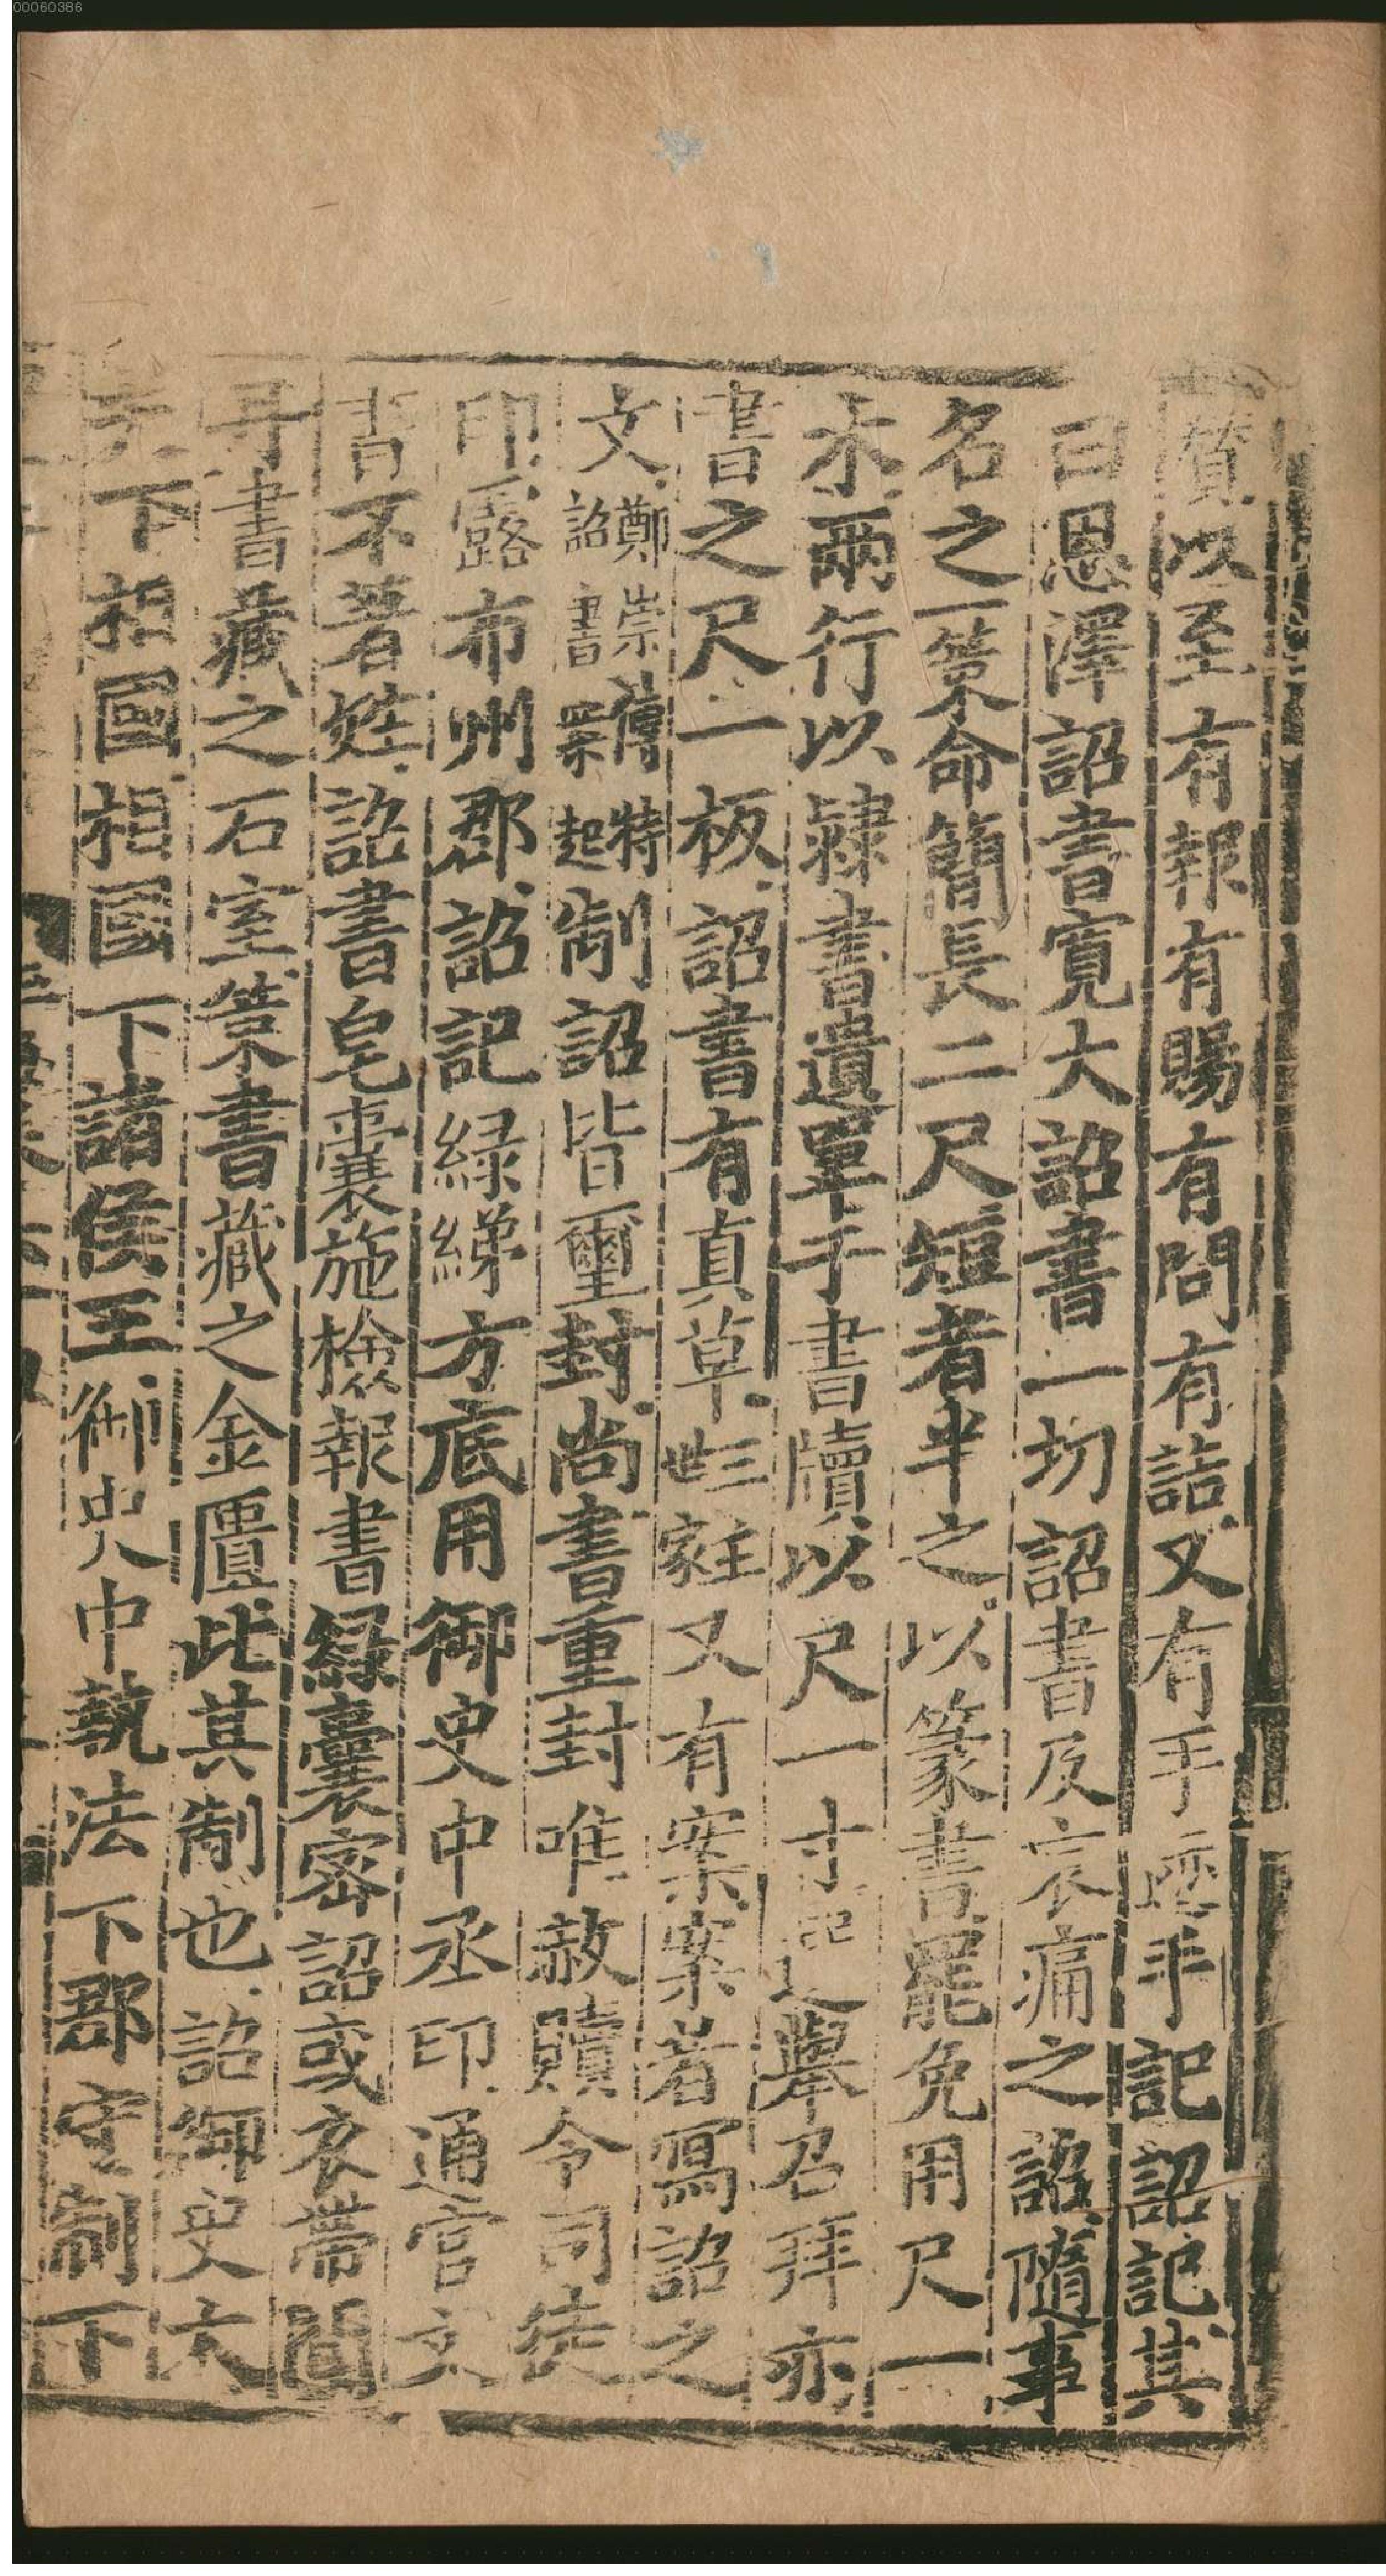 00060386
質以至有報有賜有問有誥又有手迹手記詔記其
曰恩澤詔書寬大詔書一切詔書及哀痛之詔隨事
名之策命簡長二尺短者半之以篆書罷免用尺一
木兩行以隸書遺單于書牘以尺一寸記之舉召拜亦
書之尺一板詔書有真草三王世家又有案案者寫詔之
文鄭崇傳特詔書案起制詔皆璽封尚書重封唯赦贖令司徒
印露布州郡詔記緑綈方底用御史中丞印通官文
書不著姓詔書皂囊施檢報書緑囊密詔或衣帶間
丹書藏之石室策書藏之金匱此其制也詔御史大
夫下相國相國下諸侯王御史中執法下郡守制下